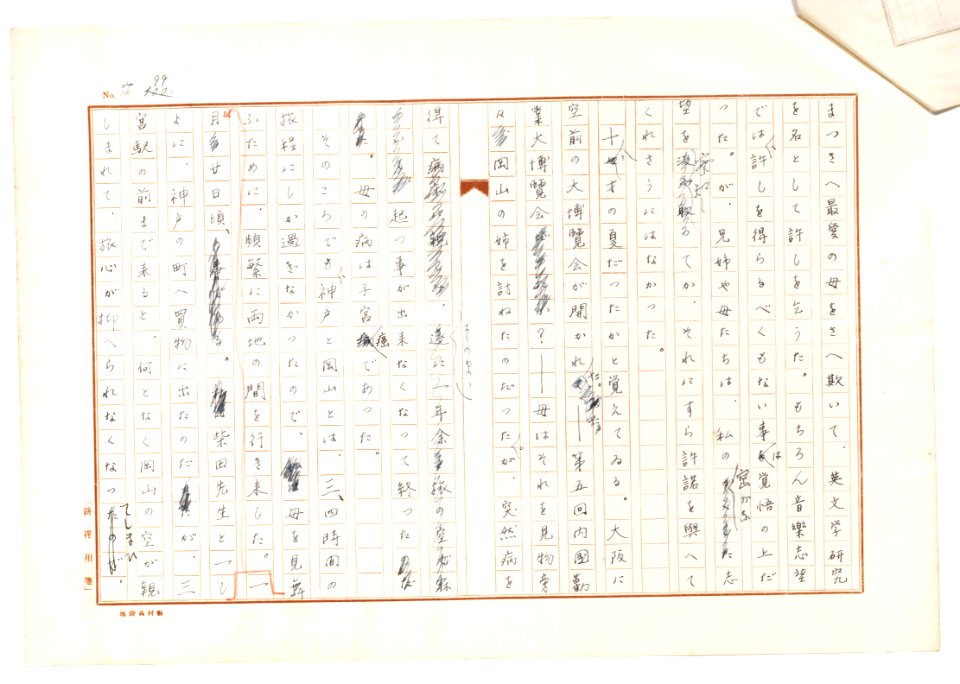 No. 99
まつさへ最愛の母をさへ欺いて、英文学研究
を名として許しを乞うた。もちろん音樂志望
では許しを得らるべくもない事は覚悟の上だ
った。が、兄姉や母たちは、私の密かな志
望を察知してか、それにすら許諾を與へて
くれさうにはなかった。
十才の夏だったかと覚えてゐる。大阪に
空前の大博覧会が開かれた。――第五回内國勸
業大博覧会か?――母はそれを見物旁
岡山の姉を訪ねたのだったが、突然病を
得て、一年余旅の空
起つ事が出来なくなって終った
。母の病は子宮癌であった。
そのころでも神戸と岡山とは、三、四時間の
旅程にしか過ぎなかったので、母を見舞
ふために、頻繁に両地の間を行き来した。一
月廿日頃、柴田先生と一し
よに、神戸の町へ買物に出たのだが、三
宮駅の前まで来ると、何となく岡山の空が親
しまれて、旅心が抑へられなくなってしまひ